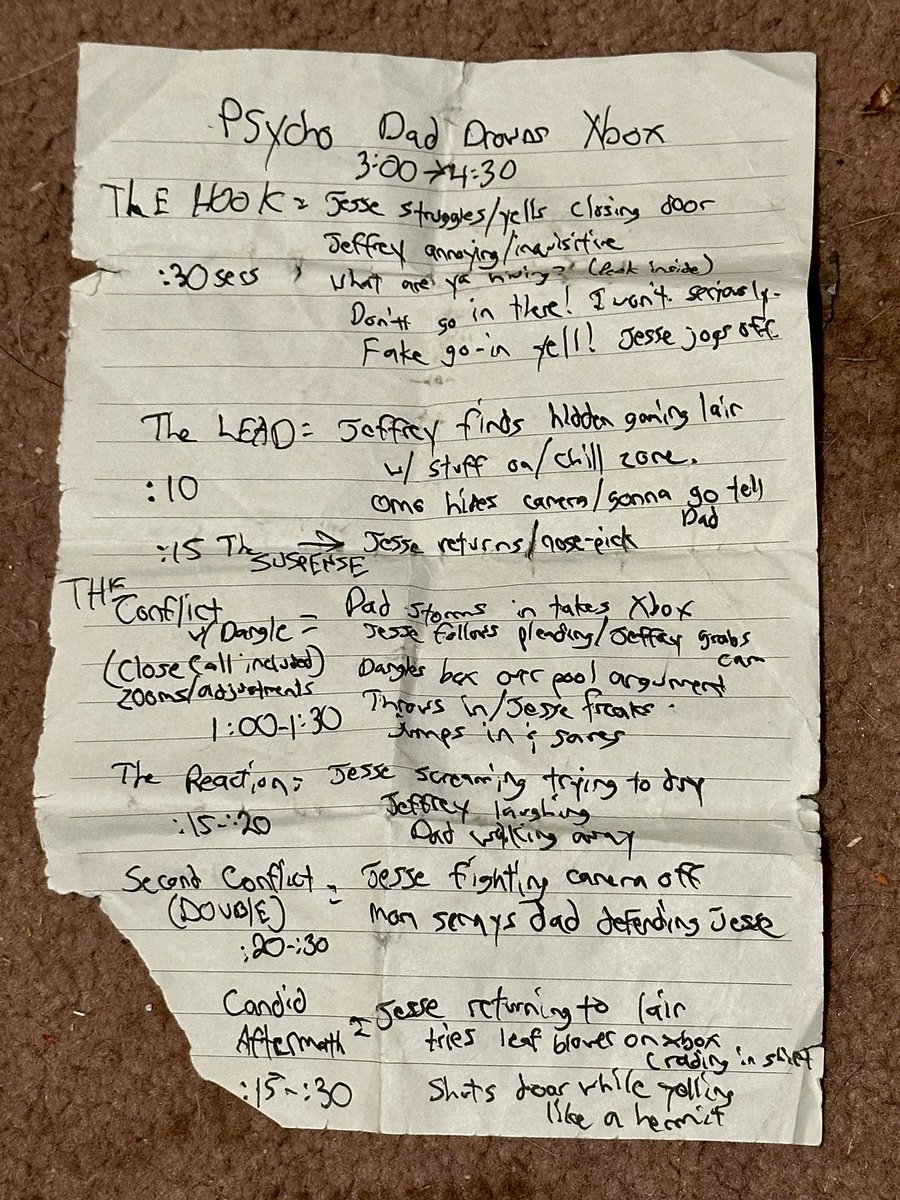 Psycho Dad Drowns Xbox
3:00→4:30
THE HOOK = Jesse struggles/yells closing door
Jeffrey annoying/inquisitive
:30 secs What are ya hiding? (Peak inside)
Don't go in there! I won't. seriously.
Fake go-in yell! Jesse jogs off
The LEAD = Jeffrey finds hidden gaming lair
w/ stuff on/chill zone.
:10 omg hides camera/gonna go tell
Dad
:15 The SUSPENSE → Jesse returns/nose-pick
THE Conflict = Dad storms in takes Xbox
w/ Dangle Jesse follows pleading/Jeffrey grabs
cam
(Close call included) Dangles box over pool argument
zooms/adjustments Throws in/Jesse freaks.
1:00-1:30 Jumps in & saves
The Reaction = Jesse screaming trying to dry
Jeffrey laughing
:15-:20 Dad walking away
Second Conflict = Jesse fighting camera off
(DOUBLE) mom sprays dad defending Jesse
:20-:30
Candid Jesse returning to lair
Aftermath = tries leaf blower on xbox
(cradling in shirt
:15-:30 Shuts door while yelling
like a hermit